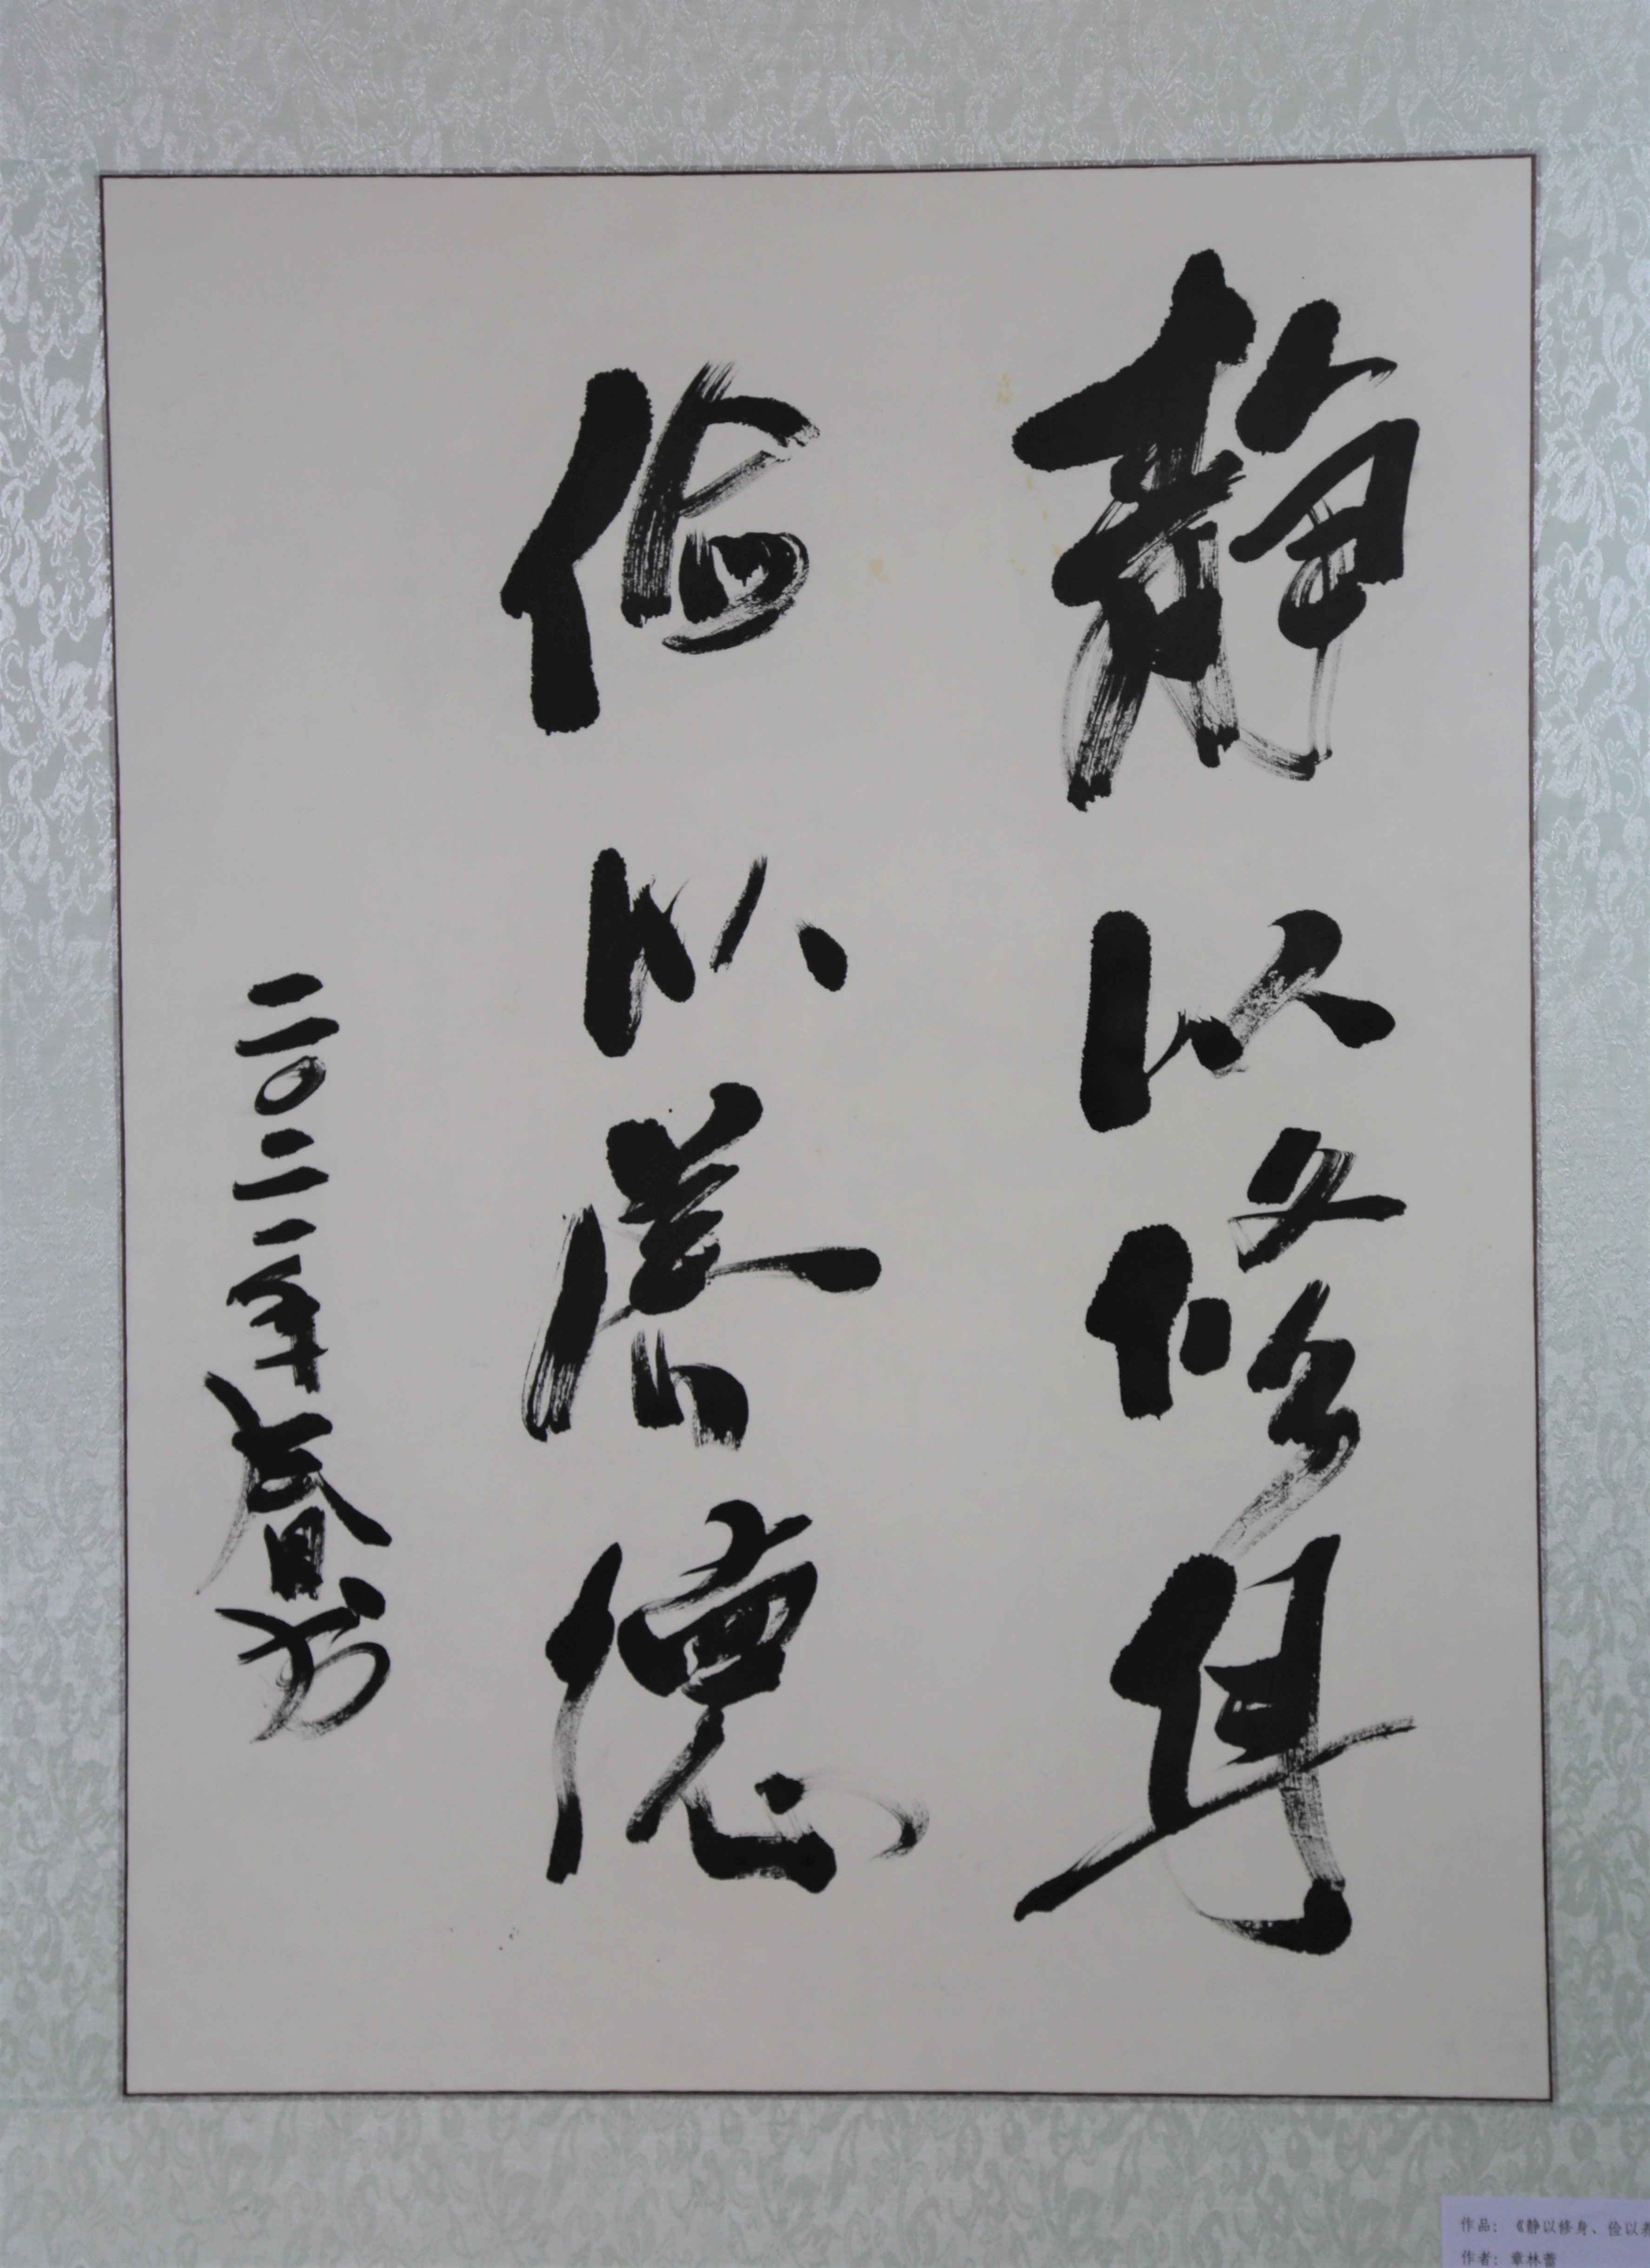 静以修身
俭以养德
二〇二一年春日书
作品：《静以修身、俭以养
作者：章林蕾